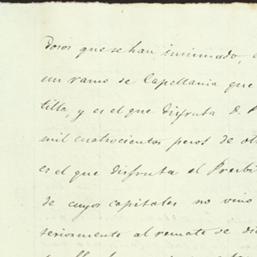 dores que se han insinuado,
un ramo de Capellania que
tilla, y es el que disfruta D.
mil cuatrocientos pesos de
es el que disfruta el Presbi
de cuyos capitales no vino
teriormente al remate se di